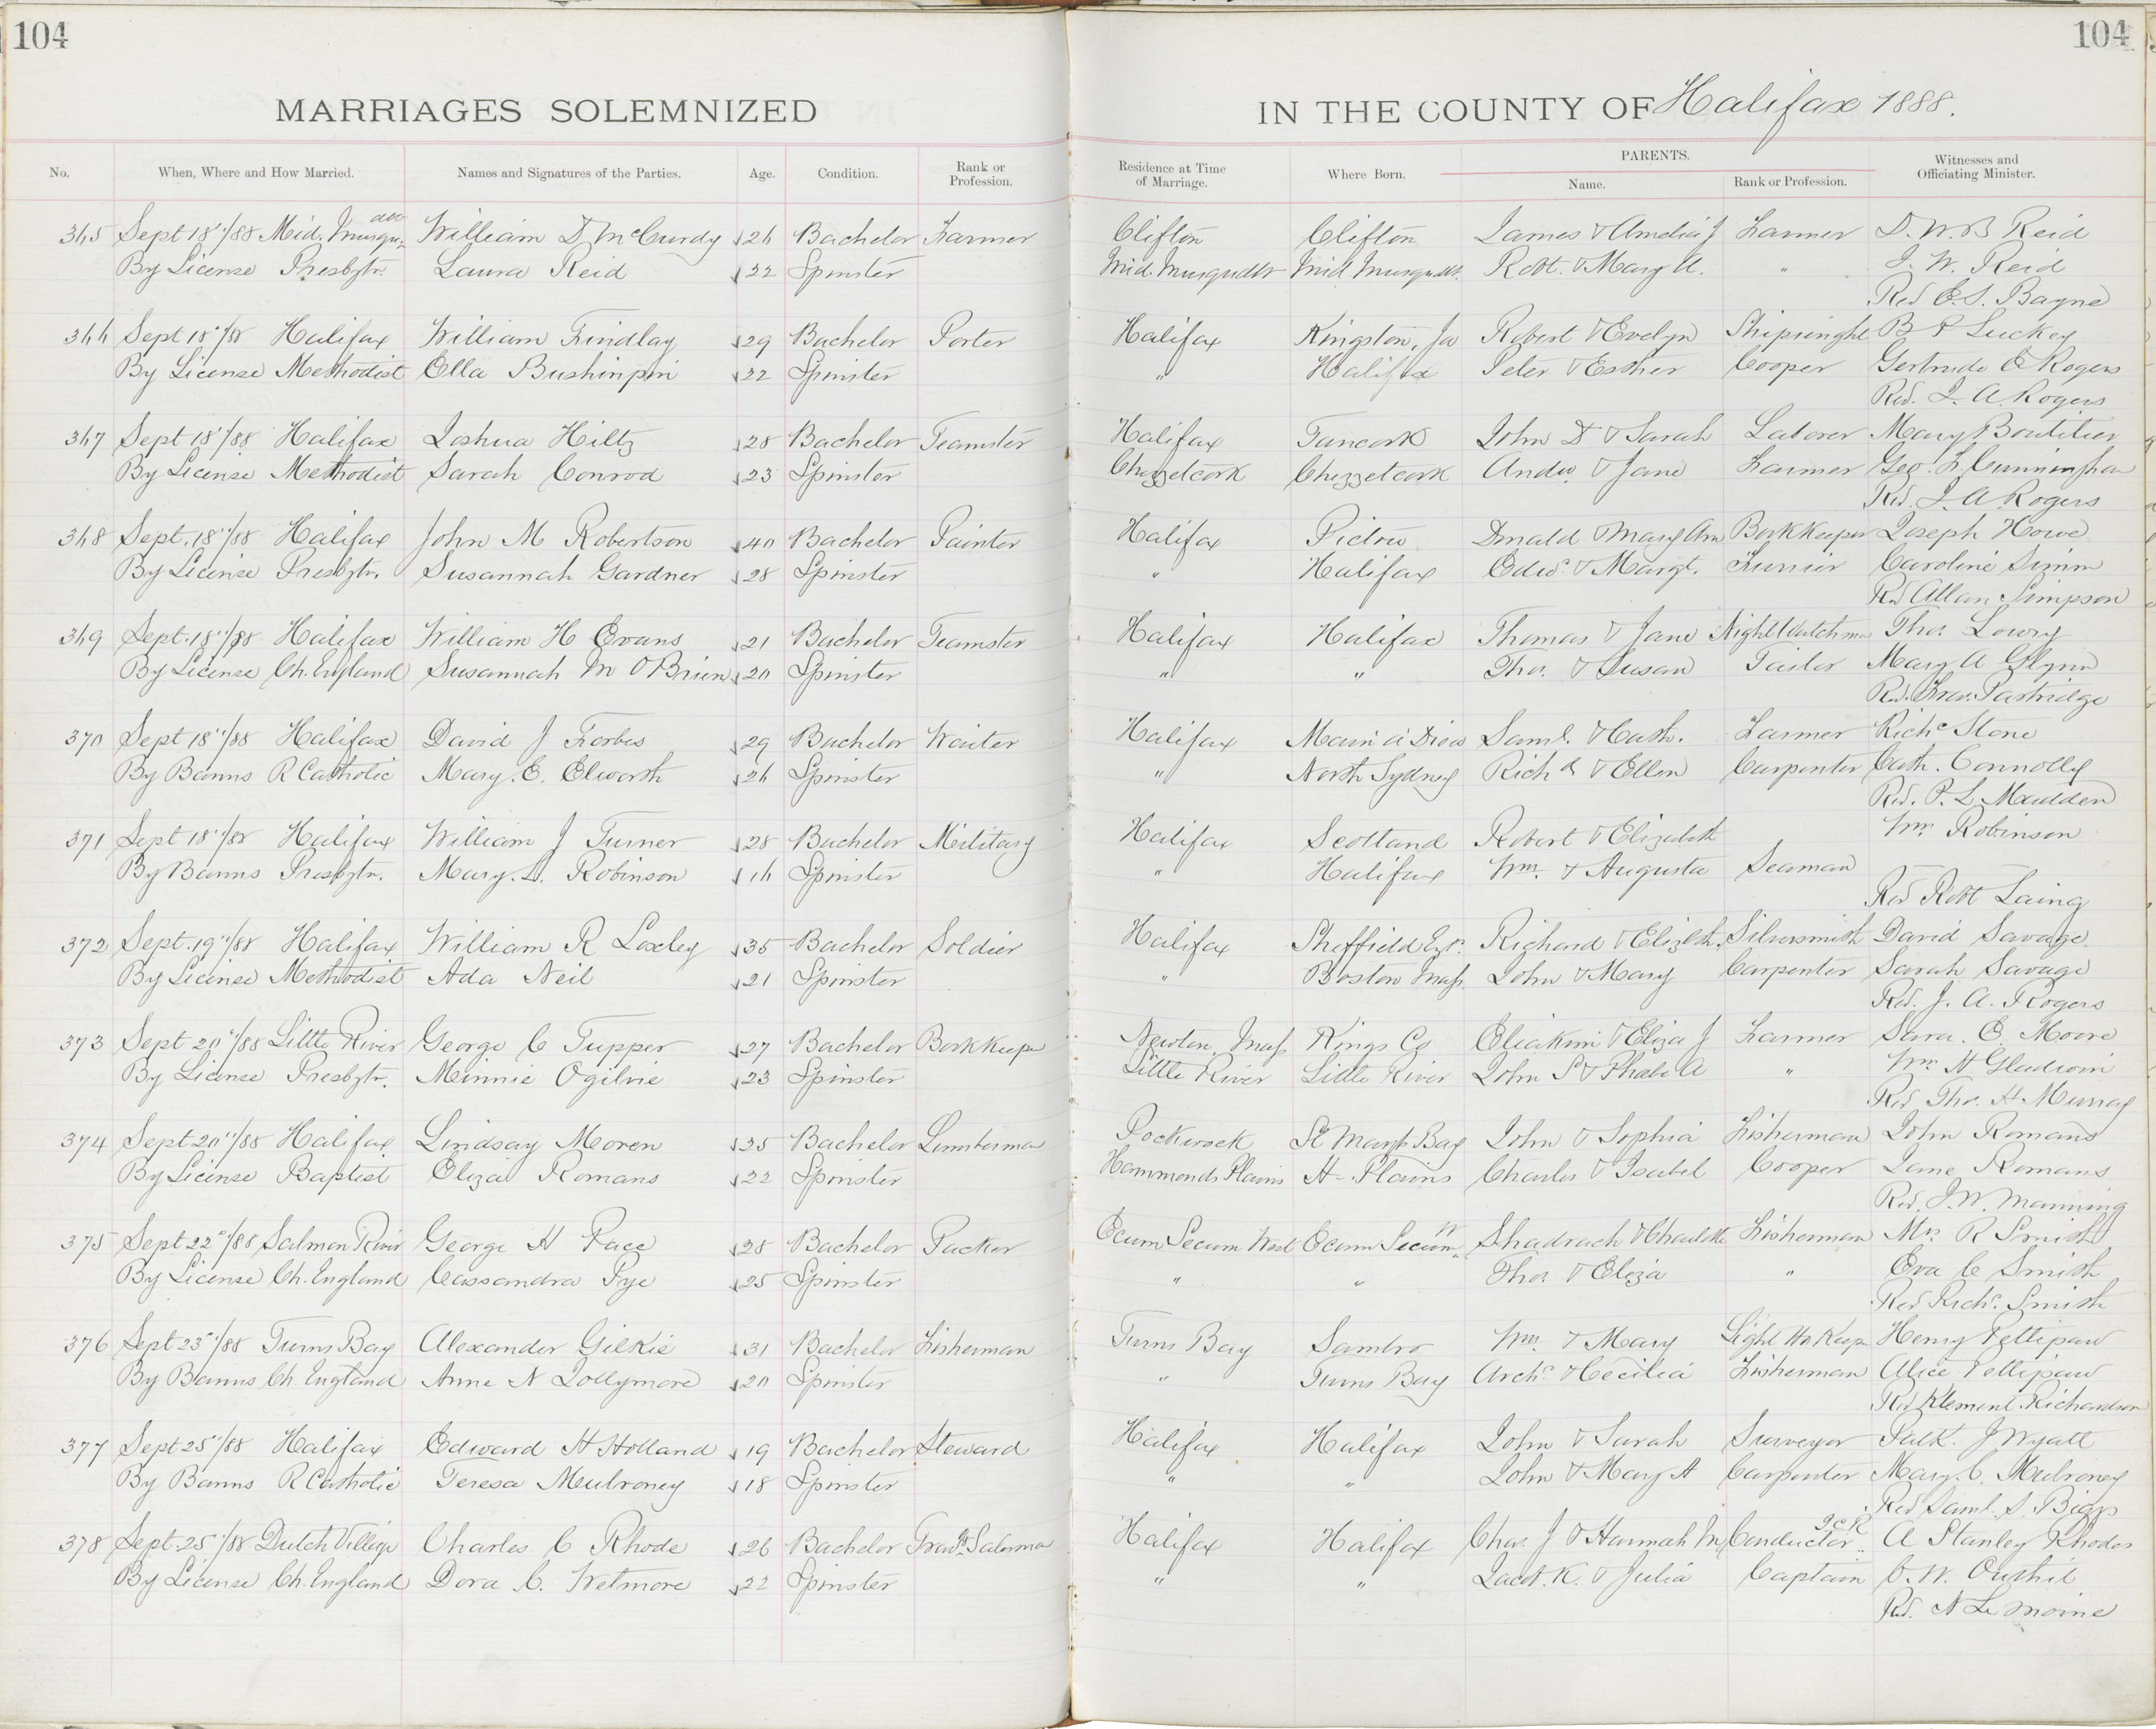 104
104
MARRIAGES SOLEMNIZED
IN THE COUNTY OF Halifax 1888.
No. When, Where and How Married. Names and Signatures of the Parties. Age. Condition. Rank or Profession. Residence at Time of Marriage. Where Born. PARENTS. Name. Rank or Profession. Witnesses and Officiating Minister.
365 Sept 18"/88 Mid. Musquo. William D McCurdy 26 Bachelor Farmer Clifton Clifton James & Amelia J Farmer D. W. B Reid
By License Presbytn. Laura Reid 32 Spinster Mid. Musquodt Mid Musquodt. Robt. & Mary A. " J. W. Reid
Rev E. S. Bayne
366 Sept 18"/88 Halifax William Findlay 29 Bachelor Porter Halifax Kingston, Ja Robert & Evelyn Shipwright B P Luckey
By License Methodist Ella Bushinpin 32 Spinster " Halifax Peter & Esther Cooper Gertrude E Rogers
Rev. J. A. Rogers
367 Sept 18"/88 Halifax Joshua Hiltz 28 Bachelor Teamster Halifax Tancook John D & Sarah Laborer Mary Boutilier
By License Methodist Sarah Conrod 23 Spinster Chezzetcook Chezzetcook Andw. & Jane Farmer Geo. L. Cunningham
Rev. J. A Rogers
368 Sept. 18"/88 Halifax John M Robertson 40 Bachelor Painter Halifax Pictou Donald & Mary Ann Bookkeeper Joseph Howe
By License Presbytn. Susannah Gardner 28 Spinster " Halifax Edwd. & Margt. Furrier Caroline Simm
Rev Allan Simpson
369 Sept. 18"/88 Halifax William H Evans 21 Bachelor Teamster Halifax Halifax Thomas & Jane Night Watchman Thos. Lowry
By License Ch. England Susannah M O'Brien 20 Spinster " " Thos. & Susan Tailor Mary A Glynn
Rev. Fras. Partridge
370 Sept 18"/88 Halifax David J Forbes 29 Bachelor Waiter Halifax Main a Dieu Saml. & Cath. Farmer Richd Stone
By Banns R Catholic Mary. E. Elworth 26 Spinster " North Sydney Richd & Ellen Carpenter Cath. Connolly
Rev. P. L Madden
371 Sept 18"/88 Halifax William J Turner 28 Bachelor Military Halifax Scotland Robert & Elizabeth Wm Robinson
By Banns Presbytn. Mary. L. Robinson 16 Spinster " Halifax Wm. & Augusta Seaman
Rev Robt Laing
372 Sept. 19"/88 Halifax William R Loxley 35 Bachelor Soldier Halifax Sheffield Egn. Richard & Elizbth. Silversmith David Savage
By License Methodist Ada Neil 21 Spinster " Boston Mass. John & Mary Carpenter Sarah Savage
Rev. J. A. Rogers
373 Sept 20"/88 Little River George C Tupper 27 Bachelor Bookkeeper Newton, Mass Kings Co Eliakim & Eliza J Farmer Sara. E. Moore
By License Presbytn. Minnie Ogilvie 23 Spinster Little River Little River John S & Phebe A " Wm H Gladwin
Rev Thos. H Murray
374 Sept 20"/88 Halifax Lindsay Moren 25 Bachelor Lumberman Pockwock St Marys Bay John & Sophia Fisherman John Romans
By License Baptist Eliza Romans 22 Spinster Hammonds Plains H. Plains Charles & Isabel Cooper Jane Romans
Rev. J. W. Manning
375 Sept 22"/88 Salmon River George H Pace 28 Bachelor Packer Ecum Secum West Ecum Secum W Shadrach & Charlotte Fisherman Mrs. R Smith
By License Ch. England Cassandra Pye 25 Spinster " " Thos & Eliza " Eva C Smith
Rev Richd. Smith
376 Sept 23"/88 Turns Bay Alexander Gilkie 31 Bachelor Fisherman Turns Bay Sambro Wm. & Mary Light Ho. Keep Henry Pettipaw
By Banns Ch. England Anne N Jollymore 20 Spinster " Turns Bay Archd. & Cecilia Fisherman Alice Pettipaw
Rev Klement Richardson
377 Sept 25"/88 Halifax Edward H Holland 19 Bachelor Steward Halifax Halifax John & Sarah Surveyor Patk. J Wyatt
By Banns R Catholic Teresa Mulroney 18 Spinster " " John & Mary A Carpenter Mary. C. Mulroney
Rev Saml. S. Biggs
378 Sept. 25"/88 Dutch Village Charles C Rhode 26 Bachelor Travlg. Salesman Halifax Halifax Chas. J & Hannah M Conductor I C R A Stanley Rhodes
By License Ch. England Dora C. Wetmore 22 Spinster " " Jacob. K. & Julia Captain C. W. Outhit
Rev. N Le Moine